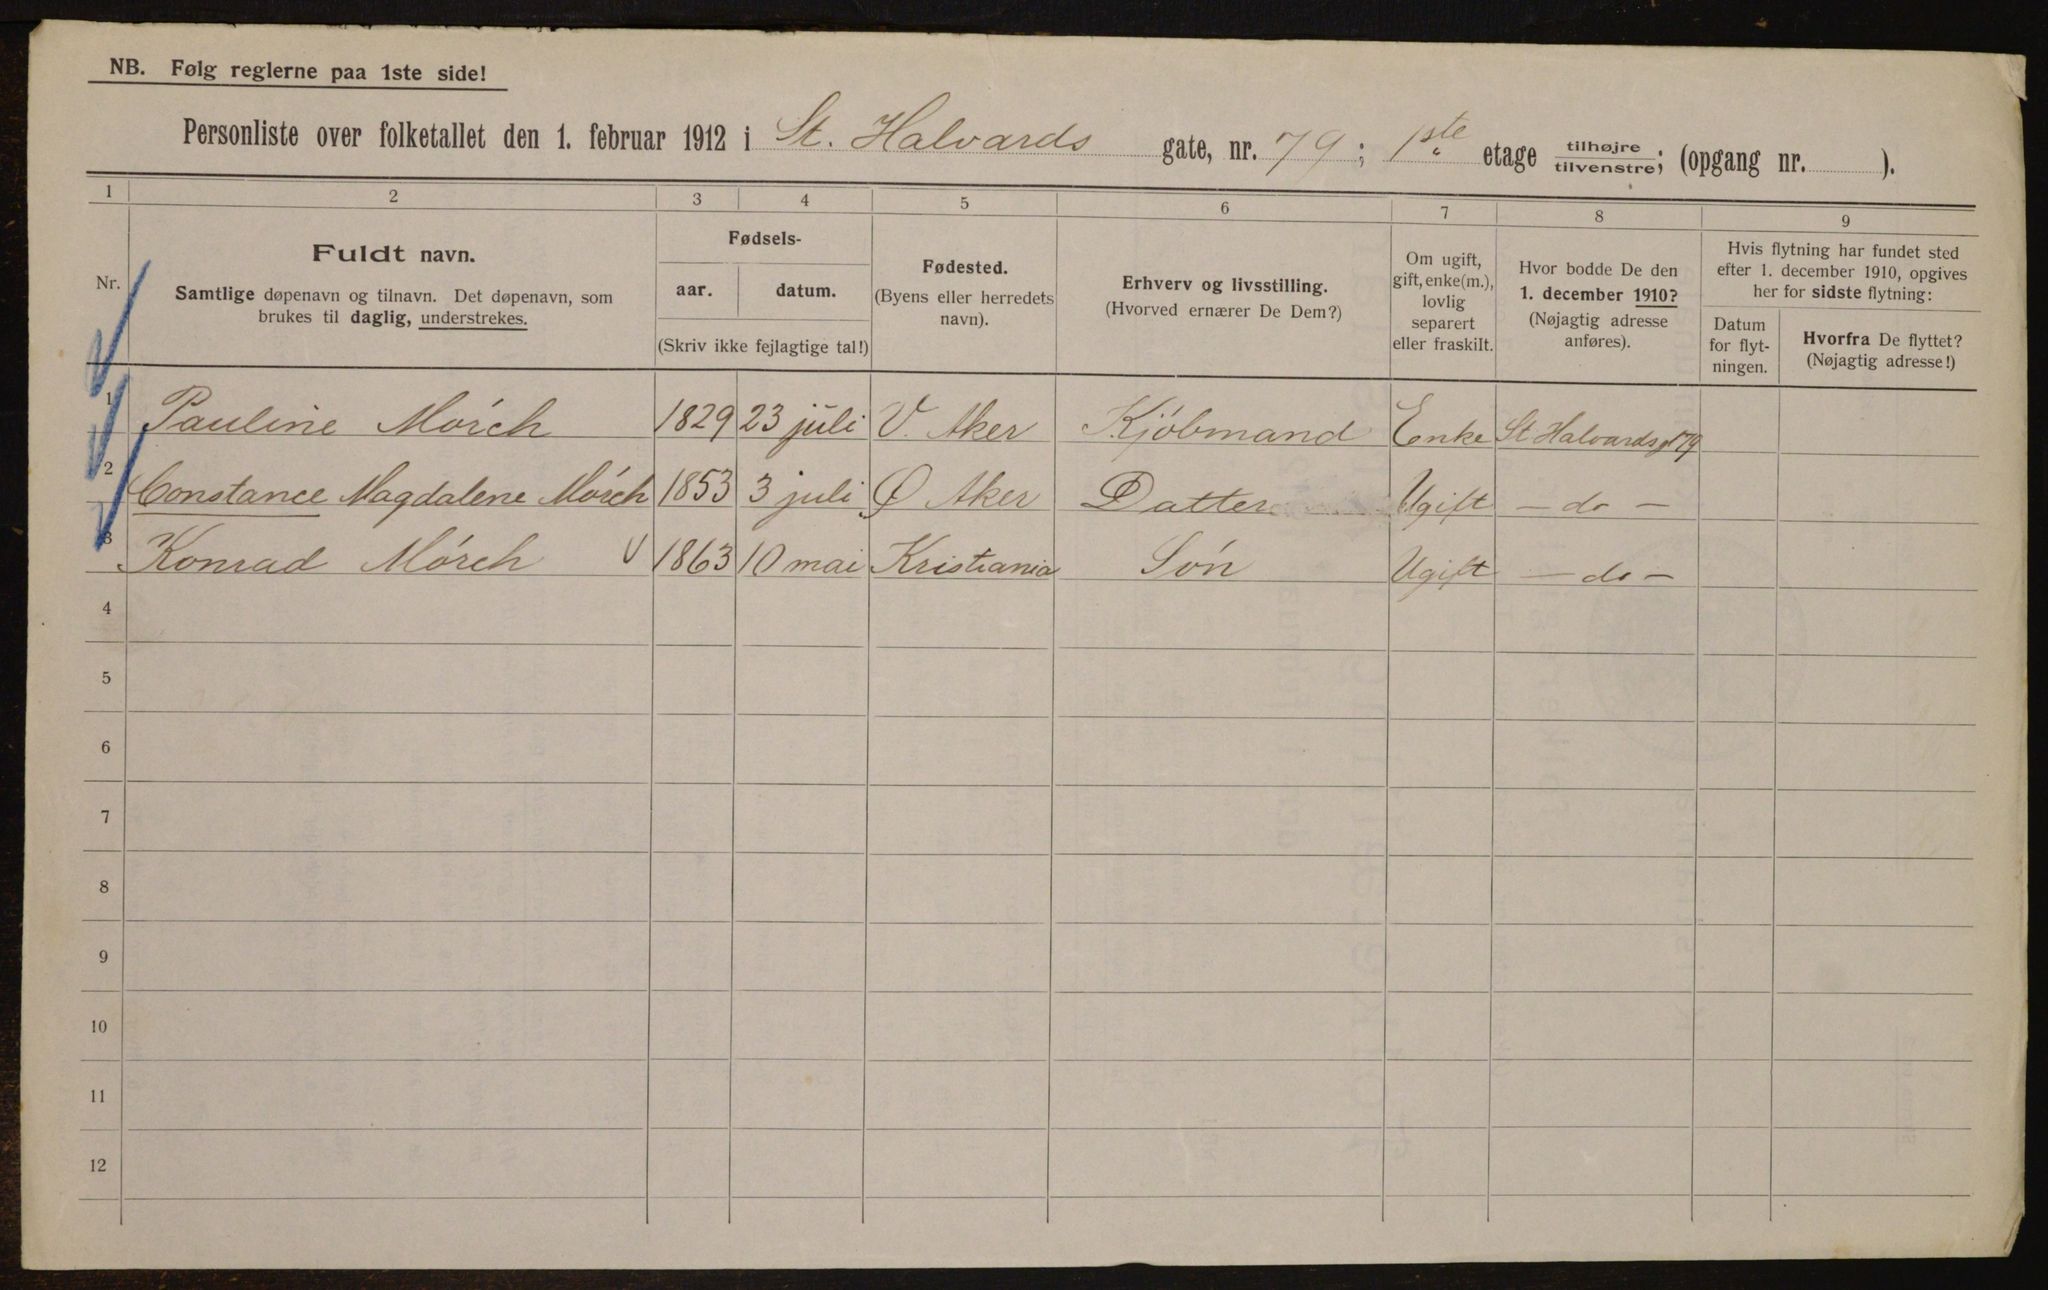 NB. Følg reglerne paa 1ste side!
Personliste over folketallet den 1. februar 1912 i St. Halvards gate, nr. 79; 1ste etage tilhøjre/tilvenstre; (opgang nr. ).
1 2 3 4 5 6 7 8 9
Nr.
Fuldt navn.
Samtlige døpenavn og tilnavn. Det døpenavn, som
brukes til daglig, understrekes.
Fødsels-
aar. datum.
(Skriv ikke fejlagtige tal!)
Fødested.
(Byens eller herredets
navn).
Erhverv og livsstilling.
(Hvorved ernærer De Dem?)
Om ugift,
gift, enke(m.),
lovlig
separert
eller fraskilt.
Hvor bodde De den
1. december 1910?
(Nøjagtig adresse
anføres).
Hvis flytning har fundet sted
efter 1. december 1910, opgives
her for sidste flytning:
Datum
for flyt-
ningen.
Hvorfra De flyttet?
(Nøjagtig adresse!)
1 Pauline Mórch 1829 23 juli V. Aker Kjóbmand Enke St Halvardsg 79
2 Constance Magdalene Mórch 1853 3 juli Ø Aker Datter Ugift — do —
3 Konrad Mórch 1863 10 mai Kristiania Són Ugift — do —
4
5
6
7
8
9
10
11
12